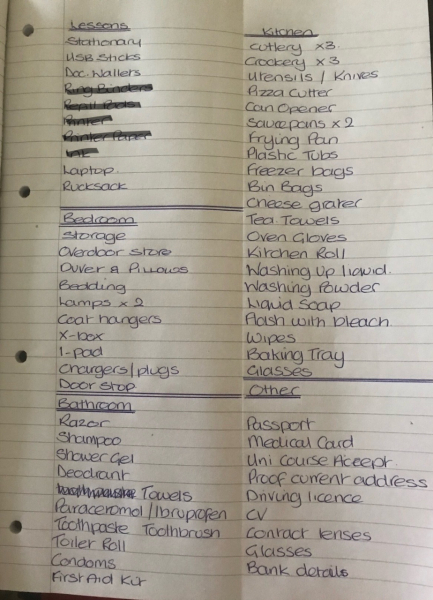 Lessons
Stationary
USB Sticks
Doc. Wallets
Ring Binders
Refill Pads
Printer
Printer Paper
Ink
Laptop.
Rucksack
Bedroom
Storage
Overdoor Store
Duvet & Pillows
Bedding
Lamps x 2
Coat hangers
X-box
I-pad
Chargers/plugs
Door Stop
Bathroom
Razor
Shampoo
Shower Gel
Deodrant
Towels
Paracetomol/Ibruprofen
Toothpaste Toothbrush
Toilet Roll
Condoms
First Aid Kit
Kitchen
Cutlery x3
Crockery x3
Utensils / Knives
Pizza Cutter
Can Opener
Saucepans x 2
Frying Pan
Plastic Tubs
Freezer bags
Bin Bags
Cheese grater
Tea Towels
Oven Gloves
Kitchen Roll
Washing Up liquid.
Washing Powder
Liquid Soap
Flash with bleach
Wipes
Baking Tray
Glasses
Other
Passport
Medical Card
Uni Course Accept.
Proof current address
Driving licence
CV
Contact lenses
Glasses
Bank details